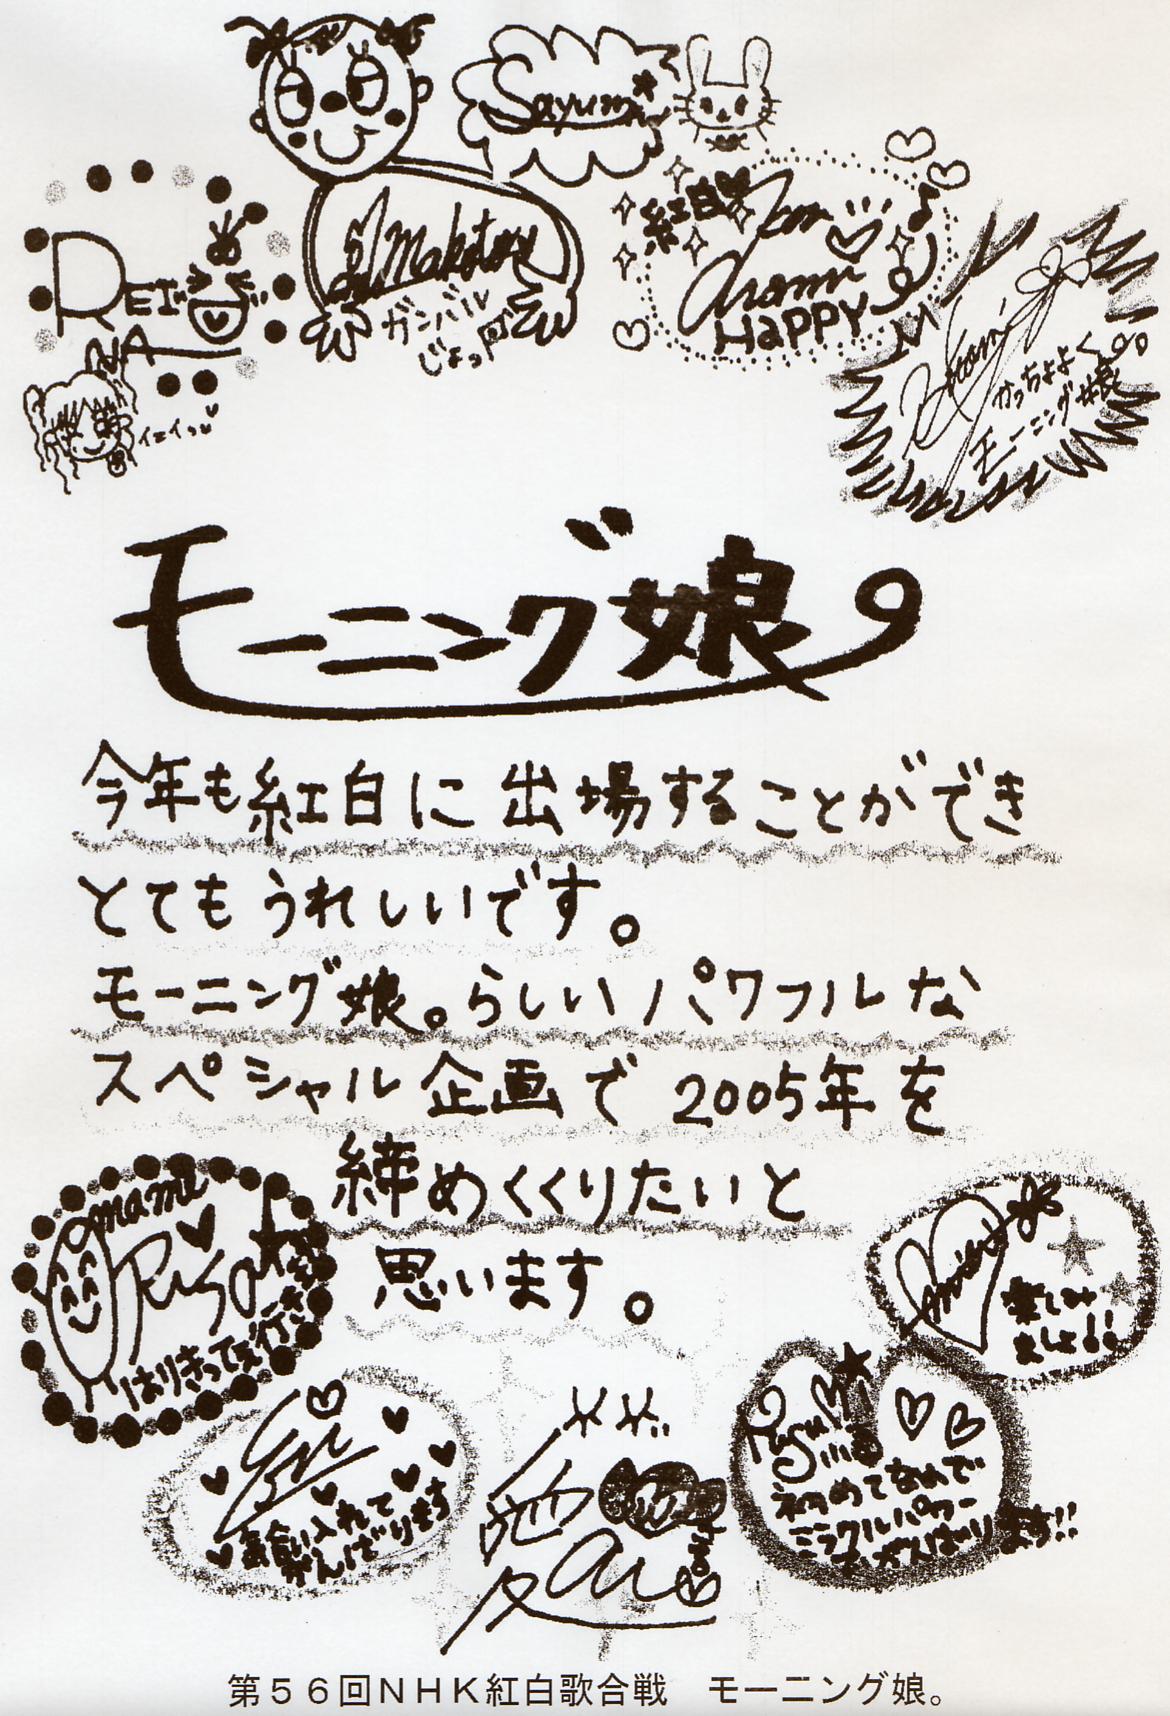 Sayumi
REINA
イェイっ
Makoto
ガンバル
じょっ
紅白
HAPPY
Hitomi
かっちょよく
モーニング娘
モーニング娘。
今年も紅白に出場することができ
とてもうれしいです。
モーニング娘。らしいパワフルな
スペシャル企画で2005年を
締めくくりたいと
思います。
mame
Risa
はりきって行こう
楽しみ
ましょ!!
気合い入れて
がんばります
Koharu
初めてなので
ミラクルパワー
でがんばります!!
愛
Ai
第56回NHK紅白歌合戦　モーニング娘。